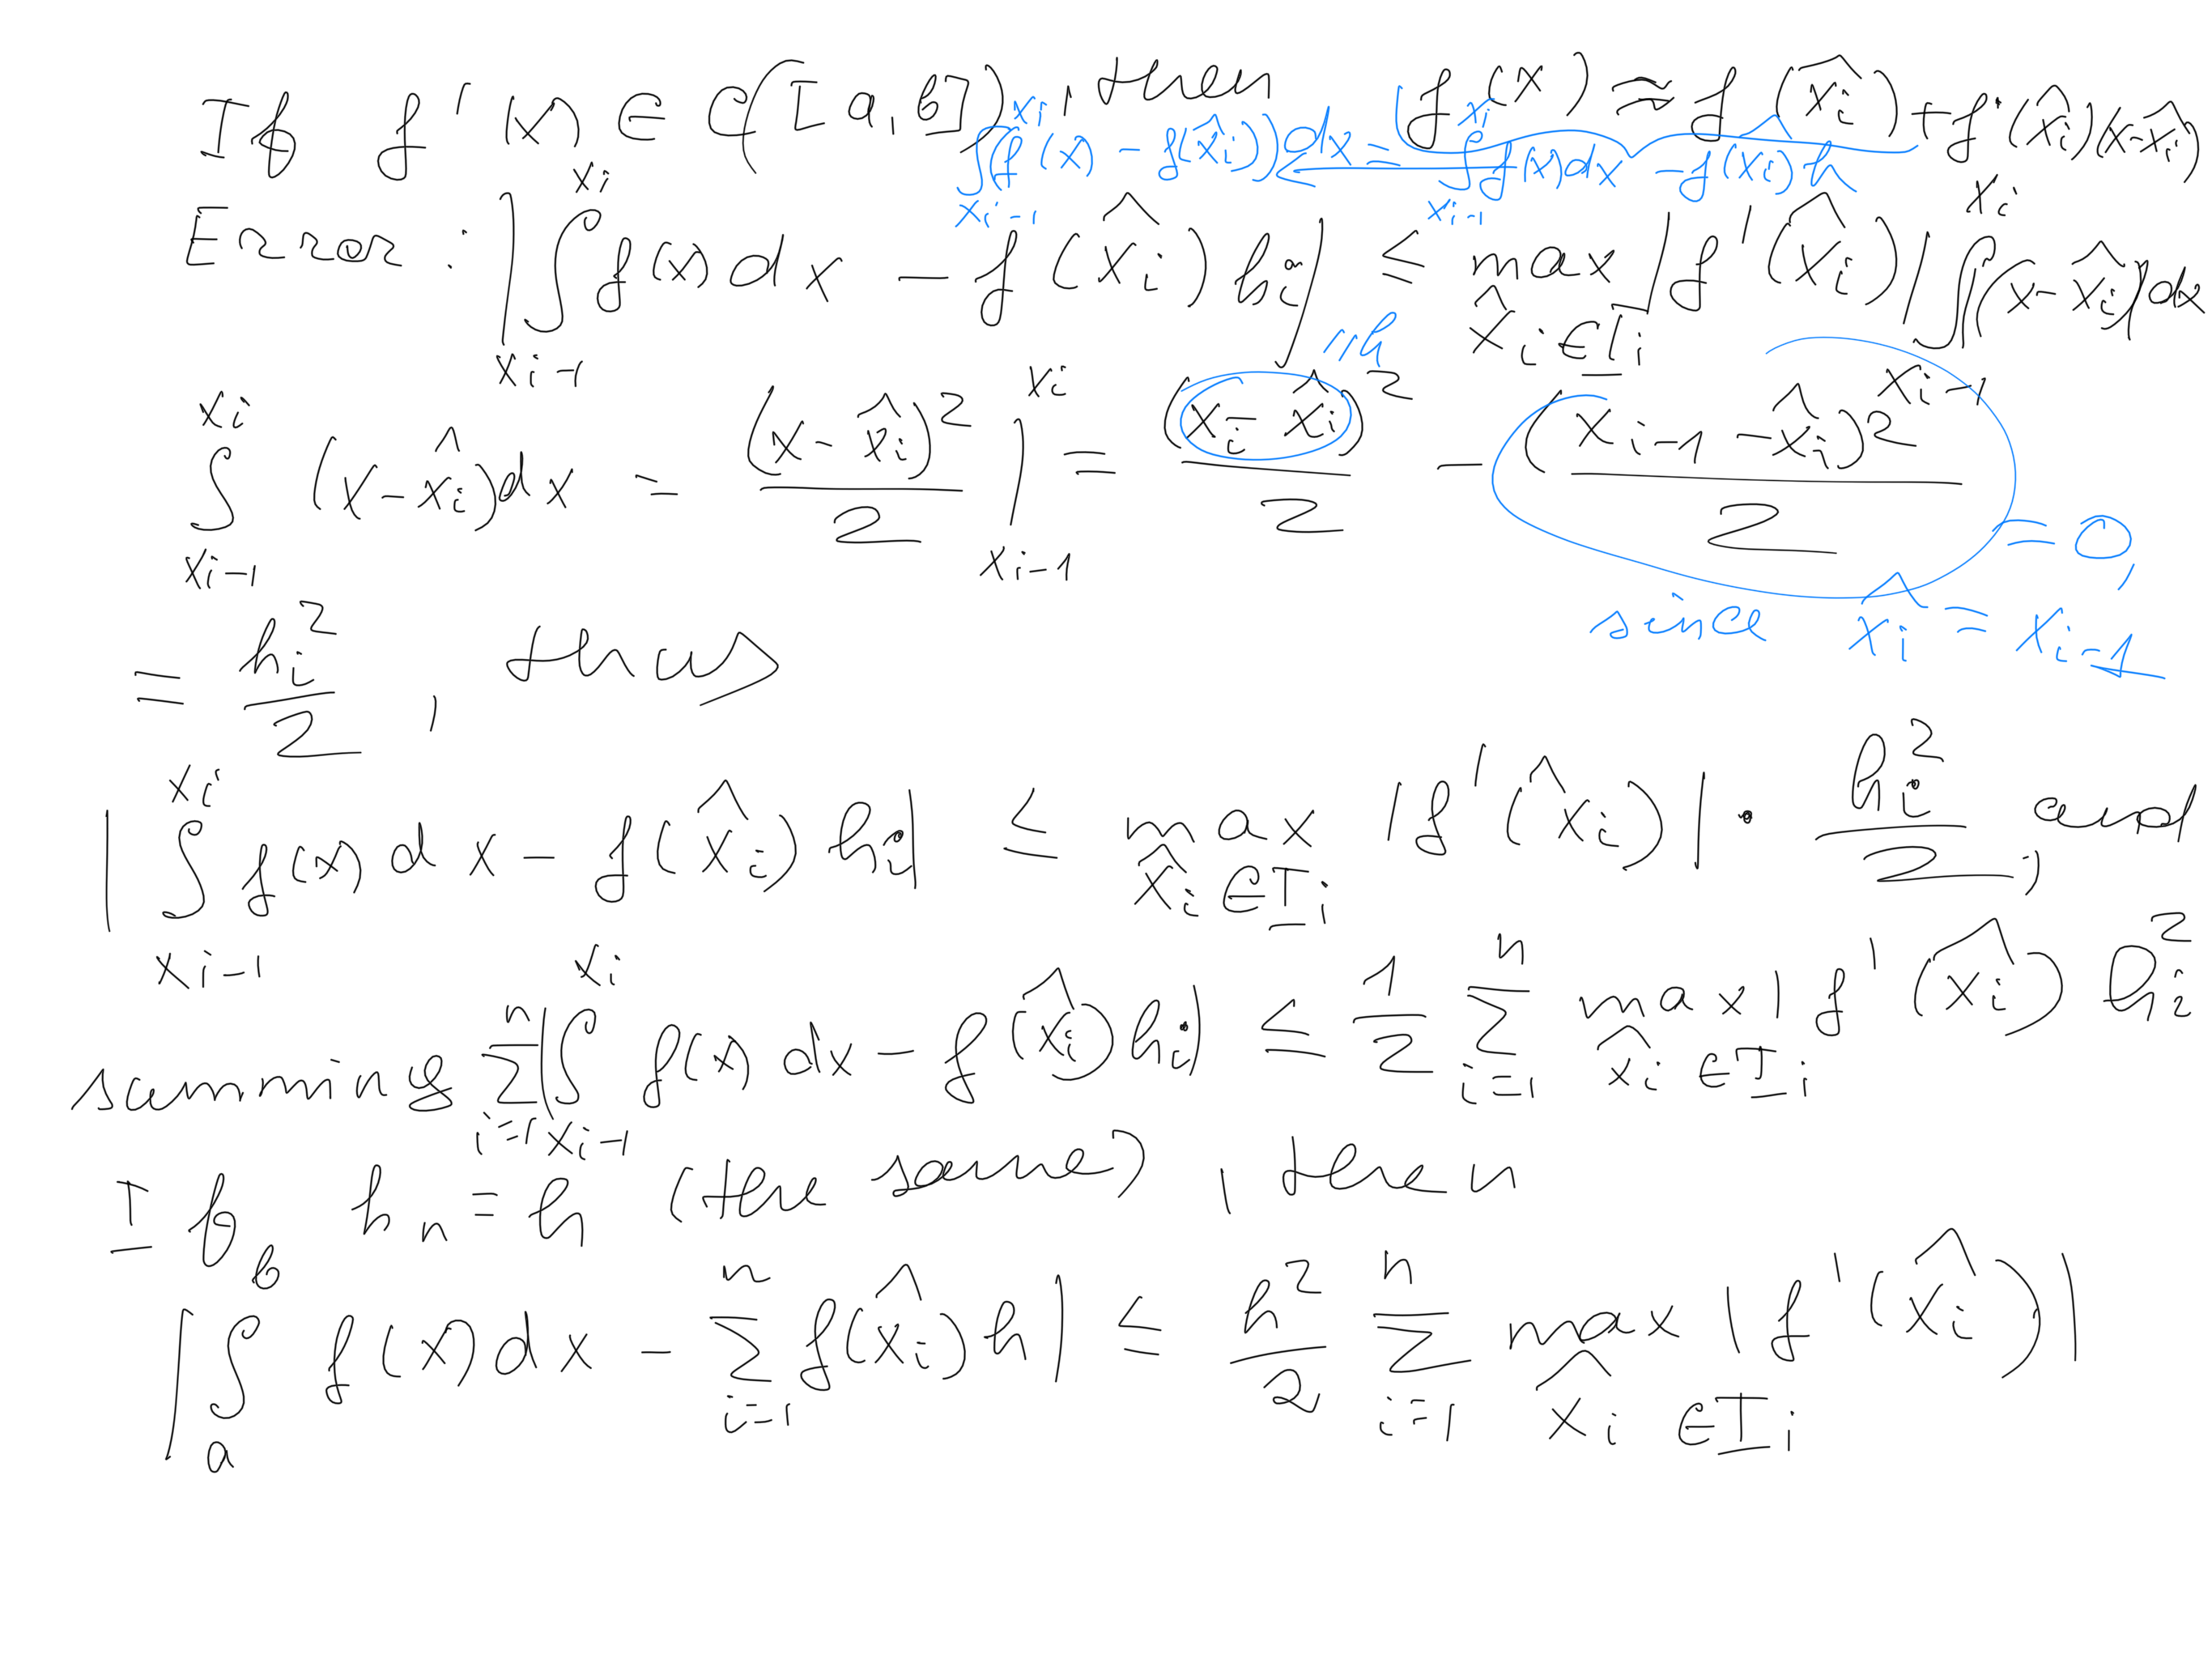 If f'(x) ∈ C([a,b]), then f(x) ≈ f(x̂_i) + f'(x̂_i)(x-x̂_i)
∫_{x_{i-1}}^{x_i} (f(x) - f(x̂_i))dx = ∫_{x_{i-1}}^{x_i} f(x)dx - f(x̂_i)h
Error: |∫_{x_{i-1}}^{x_i} f(x)dx - f(x̂_i)h_i| ≤ max_{x̂_i ∈ I_i} |f'(x̂_i)| |∫_{x_{i-1}}^{x_i} (x-x̂_i)dx
∫_{x_{i-1}}^{x_i} (x-x̂_i)dx = (x-x̂_i)^2/2 |_{x_{i-1}}^{x_i} = (x_i-x̂_i)^2/2 - (x_{i-1}-x̂_i)^2/2
"h
= 0,
since x̂_i = x_{i-1}
= h_i^2/2, thus
|∫_{x_{i-1}}^{x_i} f(x)dx - f(x̂_i)h_i| ≤ max_{x̂_i ∈ I_i} |f'(x̂_i)| · h_i^2/2; and
summing ∑_{i=1}^{n} |∫_{x_{i-1}}^{x_i} f(x)dx - f(x̂_i)h_i| ≤ 1/2 ∑_{i=1}^{n} max_{x̂_i ∈ I_i} |f'(x̂_i) h_i^2
If h_n = h (the same), then
|∫_a^b f(x)dx - ∑_{i=1}^{n} f(x̂_i)h| ≤ h^2/2 ∑_{i=1}^{n} max_{x̂_i ∈ I_i} |f'(x̂_i)|